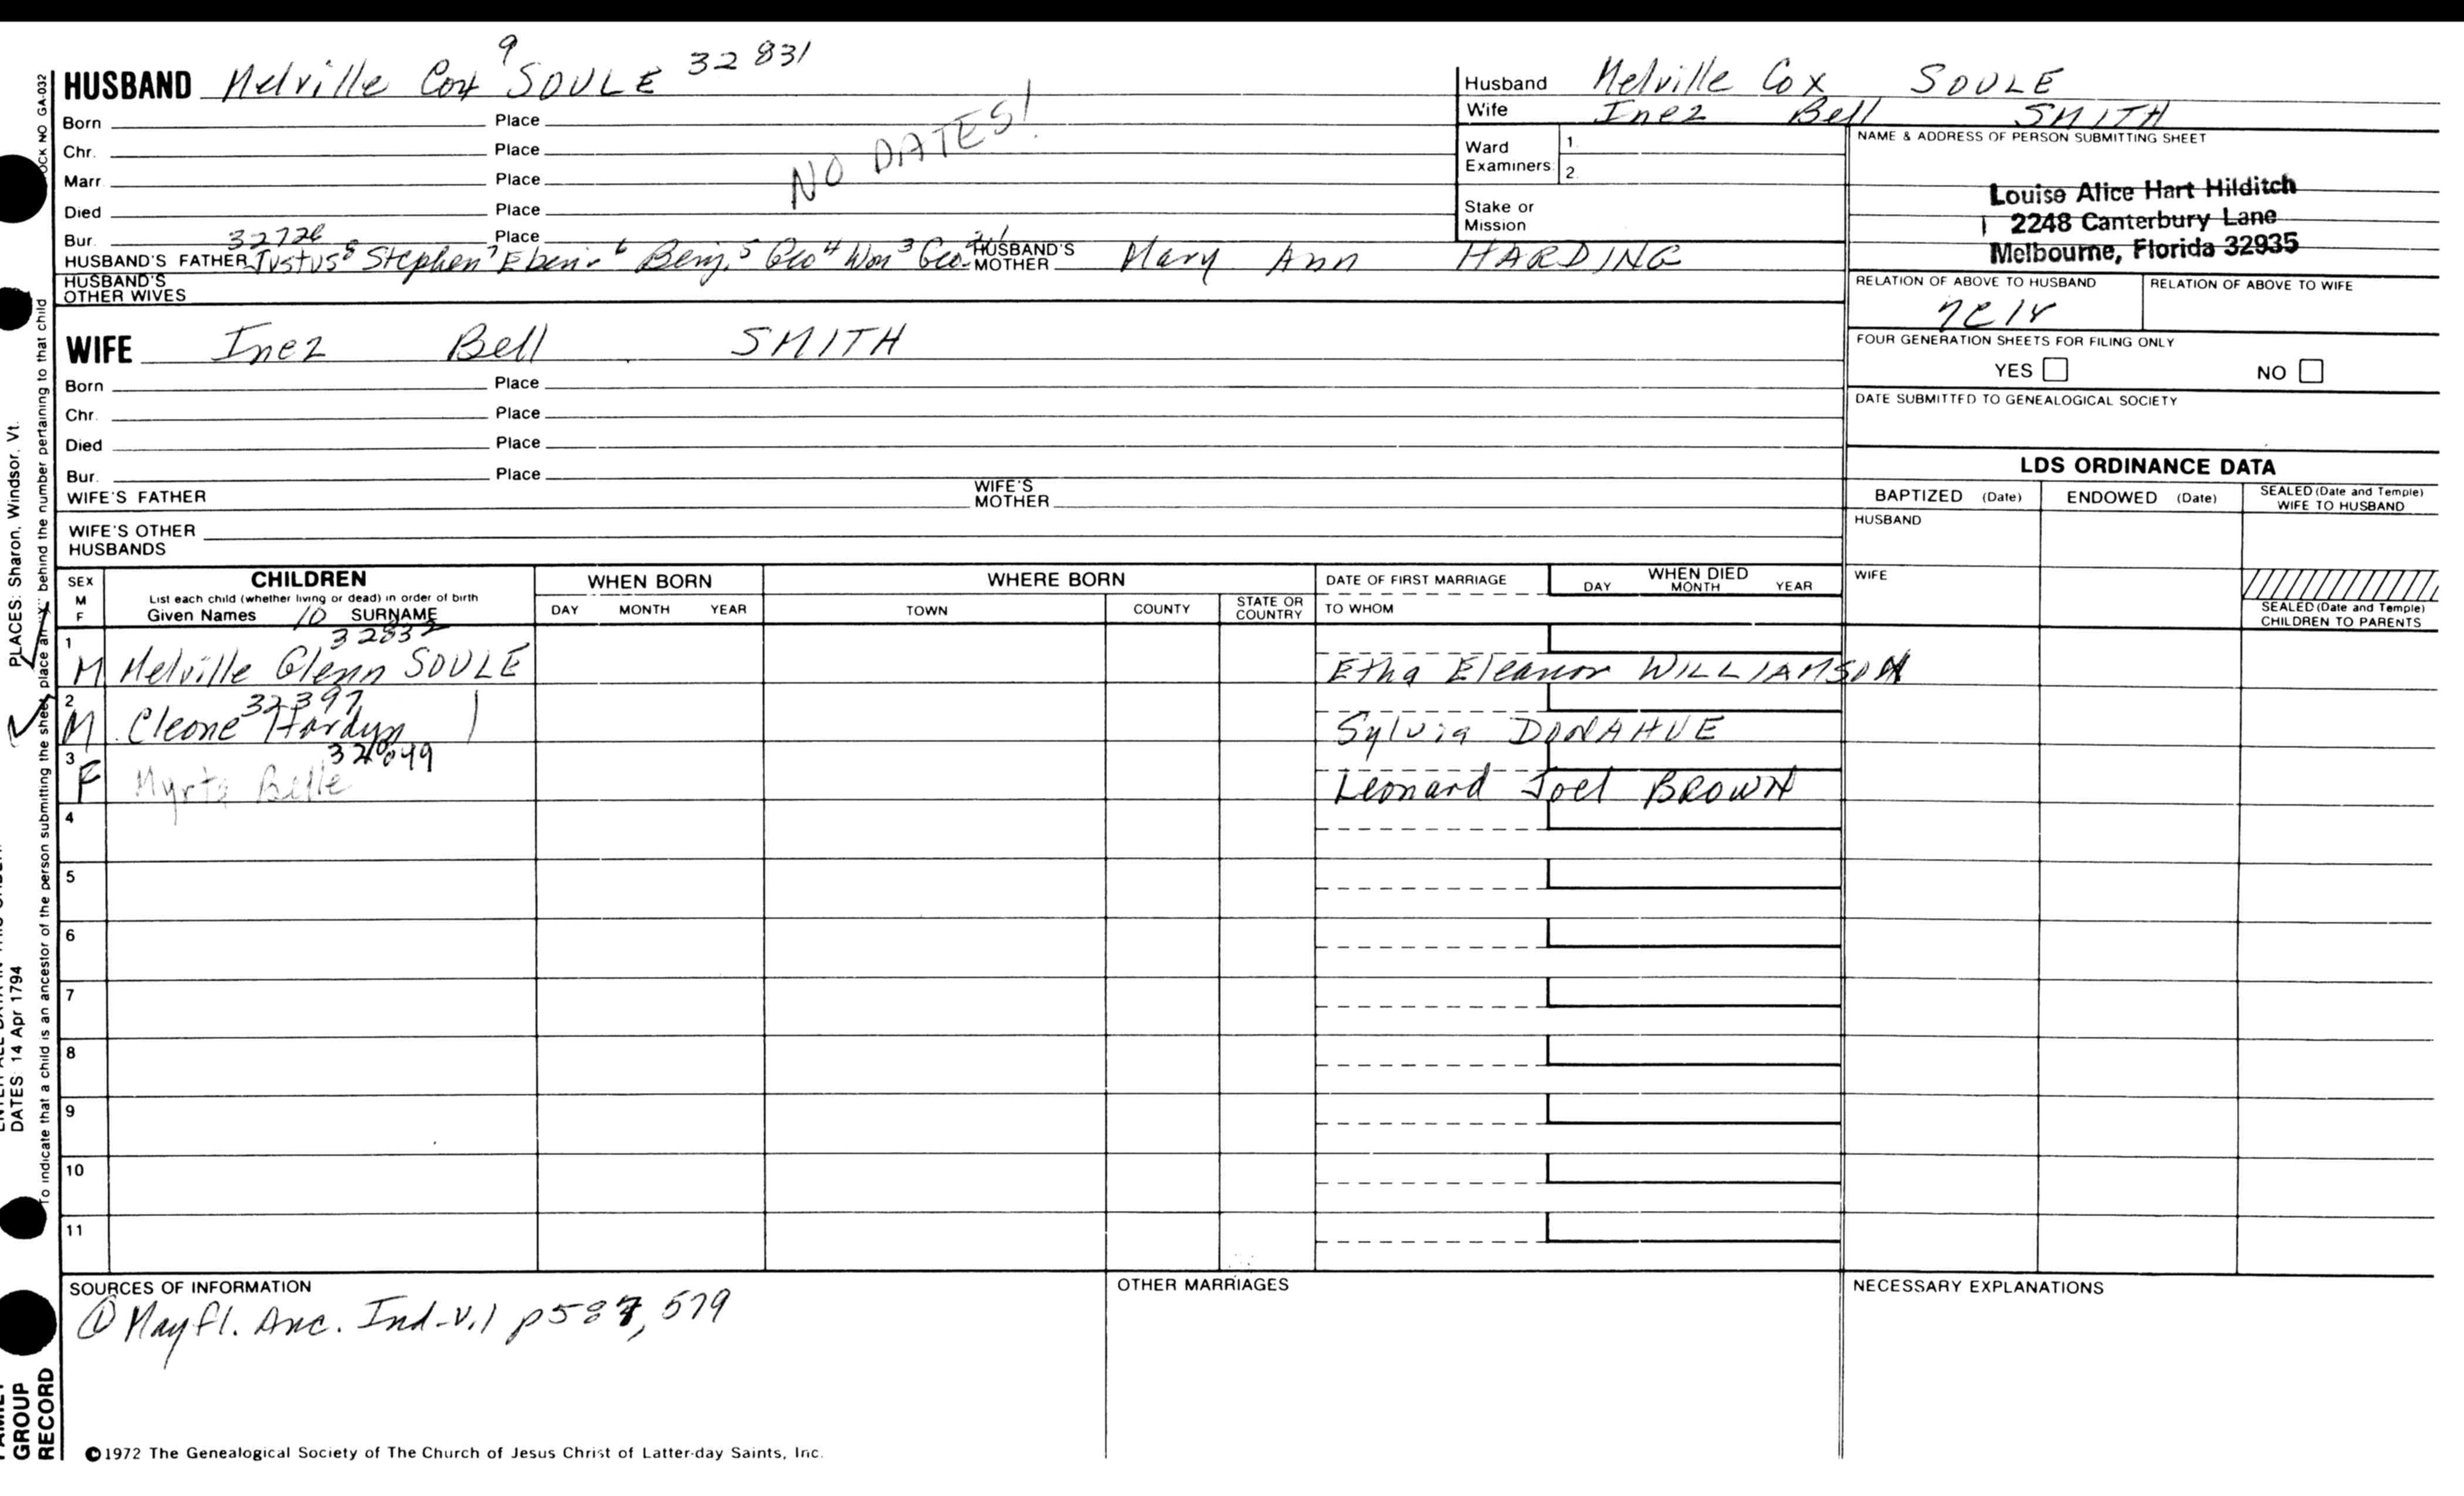 HUSBAND Melville Cox 9 SOULE 32831
Born Place
Chr. Place
Marr. Place
Died Place
Bur. Place
NO DATES!
32726
HUSBAND'S FATHER Justus 8 Stephen 7 Eben. 6 Benj. 5 Geo 4 Wm 3 Geo. 2,1 HUSBAND'S MOTHER Mary Ann HARDING
HUSBAND'S OTHER WIVES
Husband Melville Cox SOULE
Wife Inez Bell SMITH
Ward Examiners 1. 2.
Stake or Mission
NAME & ADDRESS OF PERSON SUBMITTING SHEET
Louise Alice Hart Hilditch
2248 Canterbury Lane
Melbourne, Florida 32935
RELATION OF ABOVE TO HUSBAND RELATION OF ABOVE TO WIFE
FOUR GENERATION SHEETS FOR FILING ONLY
YES NO
DATE SUBMITTED TO GENEALOGICAL SOCIETY
WIFE Inez Bell SMITH
Born Place
Chr. Place
Died Place
Bur. Place
WIFE'S FATHER WIFE'S MOTHER
WIFE'S OTHER HUSBANDS
LDS ORDINANCE DATA
BAPTIZED (Date) ENDOWED (Date) SEALED (Date and Temple) WIFE TO HUSBAND
HUSBAND
WIFE
SEALED (Date and Temple) CHILDREN TO PARENTS
SEX M F
CHILDREN
List each child (whether living or dead) in order of birth
Given Names 10 SURNAME
WHEN BORN
DAY MONTH YEAR
WHERE BORN
TOWN COUNTY STATE OR COUNTRY
DATE OF FIRST MARRIAGE
TO WHOM
WHEN DIED
DAY MONTH YEAR
32832
1 M Melville Glenn SOULE Etha Eleanor WILLIAMSON
32397
2 M Cleone Hardyn Sylvia DONAHUE
3 F Myrta Belle Leonard Joel BROWN
4
5
6
7
8
9
10
11
SOURCES OF INFORMATION
① Mayfl. Anc. Ind-V.1 p587, 579
OTHER MARRIAGES
NECESSARY EXPLANATIONS
©1972 The Genealogical Society of The Church of Jesus Christ of Latter-day Saints, Inc.
OCK NO GA-032
PLACES: Sharon, Windsor, Vt.
DATES: 14 Apr 1794
To indicate that a child is an ancestor of the person submitting the sheet, place an "X" behind the number pertaining to that child
GROUP
RECORD